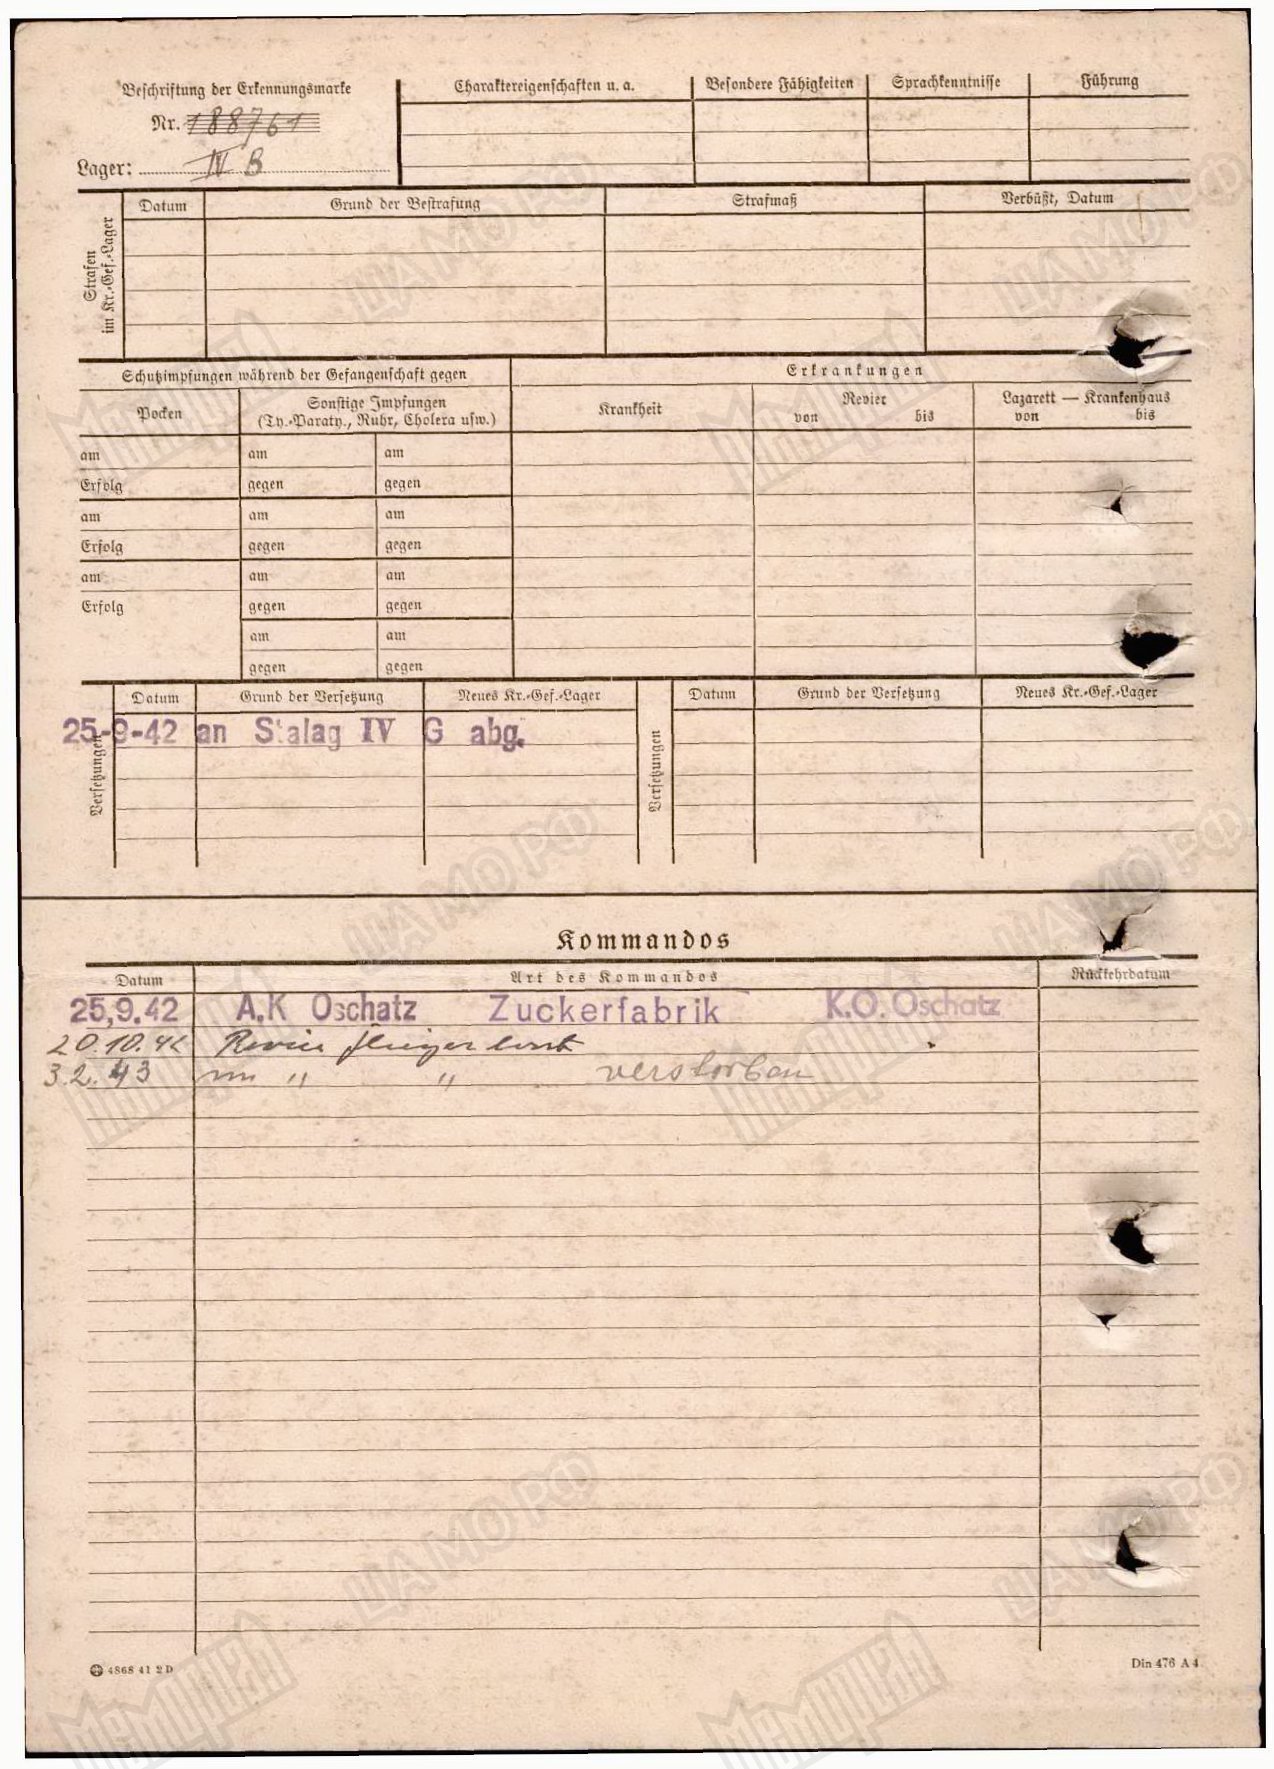 Beschriftung der Erkennungsmarke
Nr. 188761
Lager: IV B
Charaktereigenschaften u. a.
Besondere Fähigkeiten
Sprachkenntnisse
Führung
Strafen im Kr.-Gef.-Lager
Datum
Grund der Bestrafung
Strafmaß
Verbüßt, Datum
Schutzimpfungen während der Gefangenschaft gegen
Erkrankungen
Pocken
Sonstige Impfungen
(Ty.-Paraty., Ruhr, Cholera usw.)
Krankheit
Revier
von bis
Lazarett — Krankenhaus
von bis
am am am
Erfolg gegen gegen
am am am
Erfolg gegen gegen
am am am
Erfolg gegen gegen
am am
gegen gegen
Versetzungen
Datum Grund der Versetzung Neues Kr.-Gef.-Lager
25-9-42 an Stalag IV G abg.
Versetzungen
Datum Grund der Versetzung Neues Kr.-Gef.-Lager
Kommandos
Datum Art des Kommandos Rückkehrdatum
25.9.42 A.K Oschatz Zuckerfabrik K.O. Oschatz
20.10.42 Revier Fliegerhorst
3.2.43 im " " verstorben
4868 41 2 D
Din 476 A 4
ЦАМО РФ
Мемориал